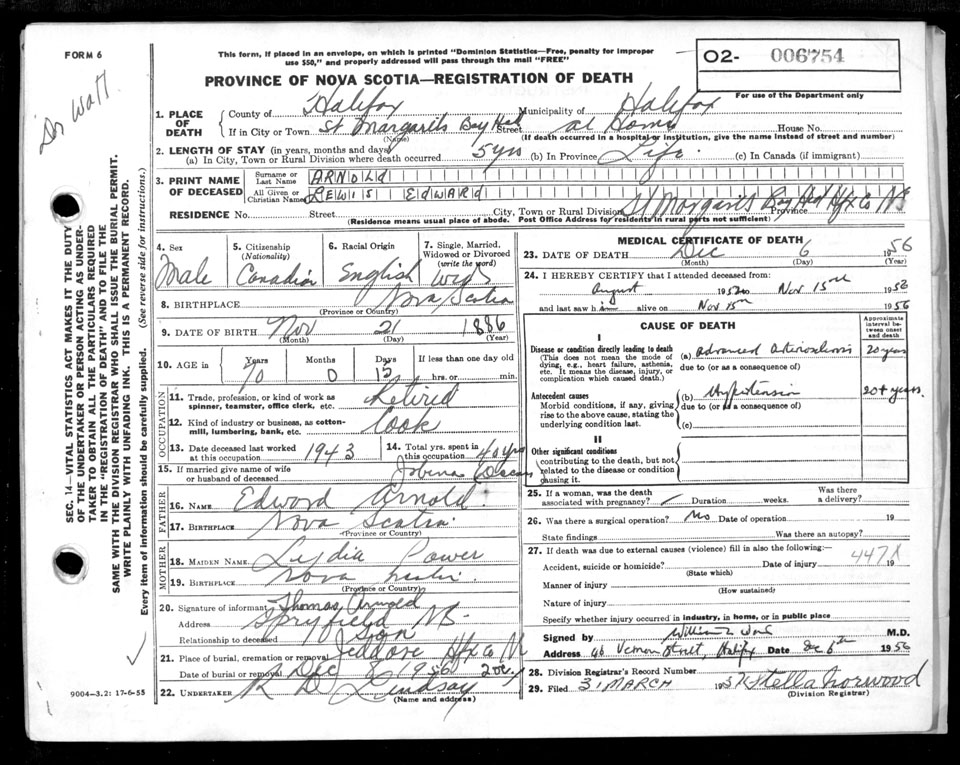 FORM 6
This form, if placed in an envelope, on which is printed "Dominion Statistics—Free, penalty for improper
use $50," and properly addressed will pass through the mail "FREE"
O2- 006754
PROVINCE OF NOVA SCOTIA—REGISTRATION OF DEATH
For use of the Department only
1. PLACE OF DEATH
County of Halifax Municipality of Halifax
If in City or Town St Margarits Bay Street at Home House No.
(Name) (If death occurred in a hospital or institution, give the name instead of street and number)
2. LENGTH OF STAY (in years, months and days)
(a) In City, Town or Rural Division where death occurred 5 yrs (b) In Province Life (c) In Canada (if immigrant)
3. PRINT NAME OF DECEASED
Surname or Last Name ARNOLD
All Given or Christian Names LEWIS EDWARD
RESIDENCE No. Street City, Town or Rural Division St Margarits Bay Rd Hfx Co NS Province
(Residence means usual place of abode. Post Office Address for residents in rural parts not sufficient)
4. Sex Male
5. Citizenship (Nationality) Canadian
6. Racial Origin English
7. Single, Married, Widowed or Divorced (write the word) Wid
8. BIRTHPLACE Nova Scotia
(Province or Country)
9. DATE OF BIRTH Nov 21 1886
(Month) (Day) (Year)
10. AGE in Years 70 Months 0 Days 15 If less than one day old hrs. or min.
OCCUPATION
11. Trade, profession, or kind of work as spinner, teamster, office clerk, etc. Retired
12. Kind of industry or business, as cotton-mill, lumbering, bank, etc. Cook
13. Date deceased last worked at this occupation 1943
14. Total yrs. spent in this occupation 40 yrs
15. If married give name of wife or husband of deceased Jobina
FATHER
16. NAME Edward Arnold
17. BIRTHPLACE Nova Scotia
(Province or Country)
MOTHER
18. MAIDEN NAME Lydia Power
19. BIRTHPLACE Nova Scotia
(Province or Country)
20. Signature of informant Thomas Arnold
Address Spryfield NS
Relationship to deceased son
21. Place of burial, cremation or removal Jeddore Hfx Co N
Date of burial or removal Dec 8 1956
22. UNDERTAKER Lindsay
(Name and address)
MEDICAL CERTIFICATE OF DEATH
23. DATE OF DEATH Dec 6 1956
(Month) (Day) (Year)
24. I HEREBY CERTIFY that I attended deceased from:
August 195 to Nov 15th 1956
and last saw h alive on Nov 15th 1956
CAUSE OF DEATH
Approximate interval between onset and death
I
Disease or condition directly leading to death
(This does not mean the mode of dying, e.g., heart failure, asthenia, etc. It means the disease, injury, or complication which caused death.)
(a) Advanced arteriosclerosis 20 years
due to (or as a consequence of)
Antecedent causes
Morbid conditions, if any, giving rise to the above cause, stating the underlying condition last.
(b) Hypertension 20+ years.
due to (or as a consequence of)
(c)
II
Other significant conditions
contributing to the death, but not related to the disease or condition causing it.
25. If a woman, was the death associated with pregnancy? Duration weeks. Was there a delivery?
26. Was there a surgical operation? No Date of operation 19
State findings Was there an autopsy?
27. If death was due to external causes (violence) fill in also the following:—
447X
Accident, suicide or homicide? Date of injury 19
(State which)
Manner of injury
(How sustained)
Nature of injury
Specify whether injury occurred in industry, in home, or in public place
Signed by M.D.
Address 46 Vernon Street, Halifax Date Dec 6th 1956
28. Division Registrar's Record Number
29. Filed 31 MARCH 195 Stella Norwood
(Division Registrar)
9004-3.2: 17-6-55
SEC. 14—VITAL STATISTICS ACT MAKES IT THE DUTY
OF THE UNDERTAKER OR PERSON ACTING AS UNDER-
TAKER TO OBTAIN ALL THE PARTICULARS REQUIRED
IN THE "REGISTRATION OF DEATH" AND TO FILE THE
SAME WITH THE DIVISION REGISTRAR WHO SHALL ISSUE THE BURIAL PERMIT.
WRITE PLAINLY WITH UNFADING INK. THIS IS A PERMANENT RECORD.
Every item of information should be carefully supplied. (See reverse side for instructions.)